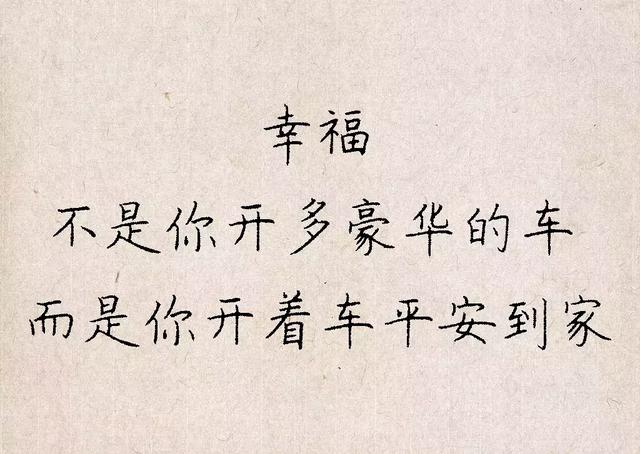 幸福
不是你开多豪华的车
而是你开着车平安到家